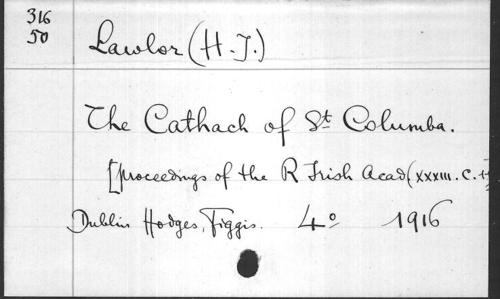 316
50
Lawlor (H. J.)
The Cathach of St Columba.
[Proceedings of the R Irish Acad (XXXIII. C. 11
Dublin Hodges, Figgis. 4º 1916